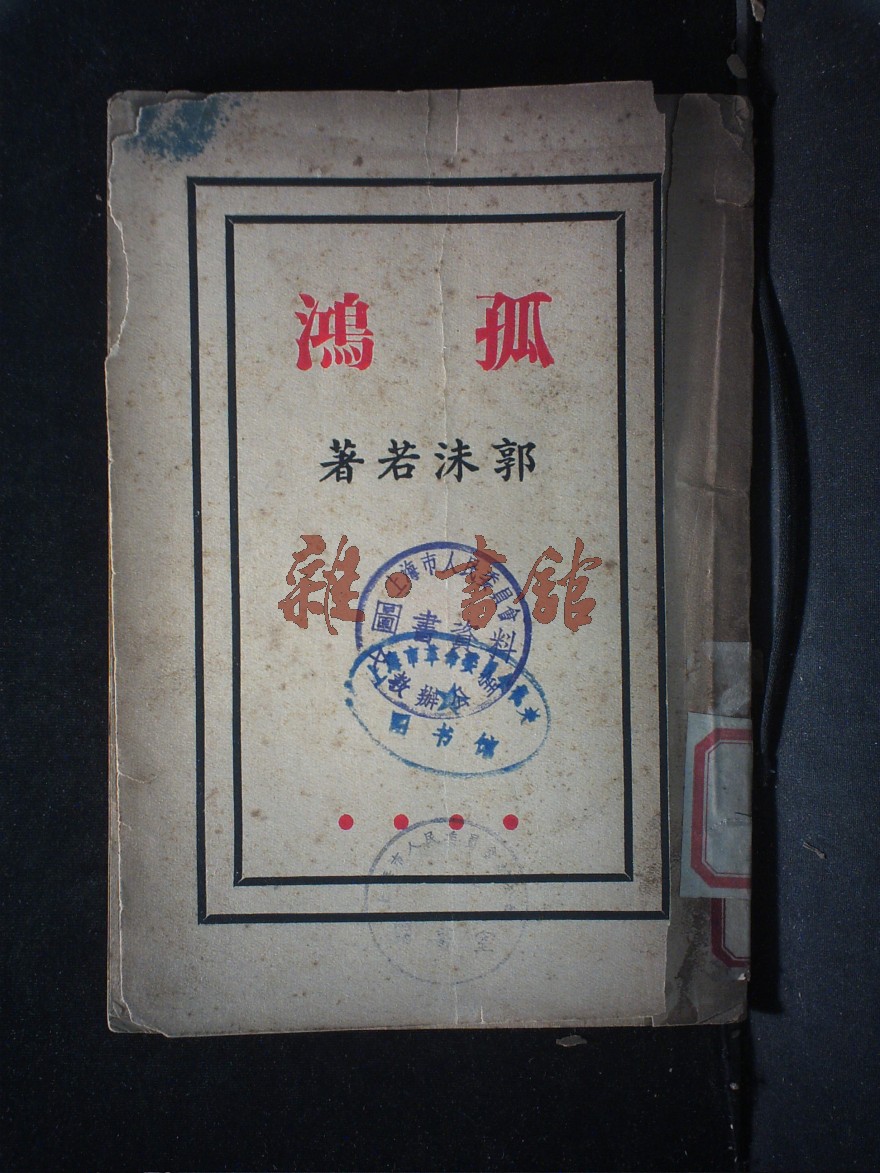 孤鴻
郭沫若著
雜·書館
上海市人民委員會
圖書資料
文教辦公
图书